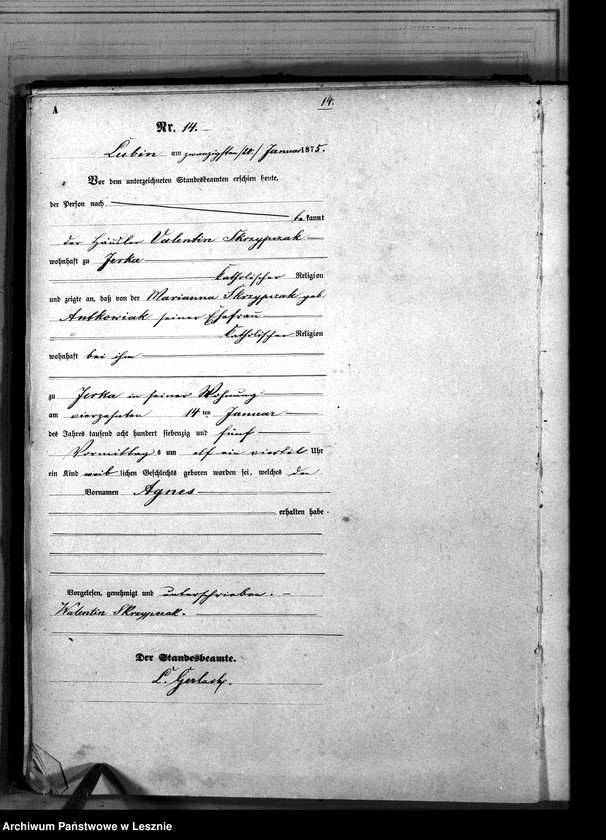 14.
A
Nr. 14.
Lubin am zwanzigsten /20/ Januar 1875.
Vor dem unterzeichneten Standesbeamten erschien heute,
der Person nach
bekannt
der Händler Valentin Skrzypczak
wohnhaft zu Jerka
katholischer Religion
und zeigte an, daß von der Marianna Skrzypczak geb.
Antkowiak seiner Ehefrau
katholischer Religion
wohnhaft bei ihm
zu Jerka in seiner Wohnung
am vierzehnten 14ten Januar
des Jahres tausend acht hundert siebenzig und fünf
Vormittags um elf ein viertel Uhr
ein Kind weiblichen Geschlechts geboren worden sei, welches den
Vornamen Agnes
erhalten habe.
Vorgelesen, genehmigt und unterschrieben. -
Walentin Skrzypczak.
Der Standesbeamte.
L. Gerlach.
Archiwum Państwowe w Lesznie